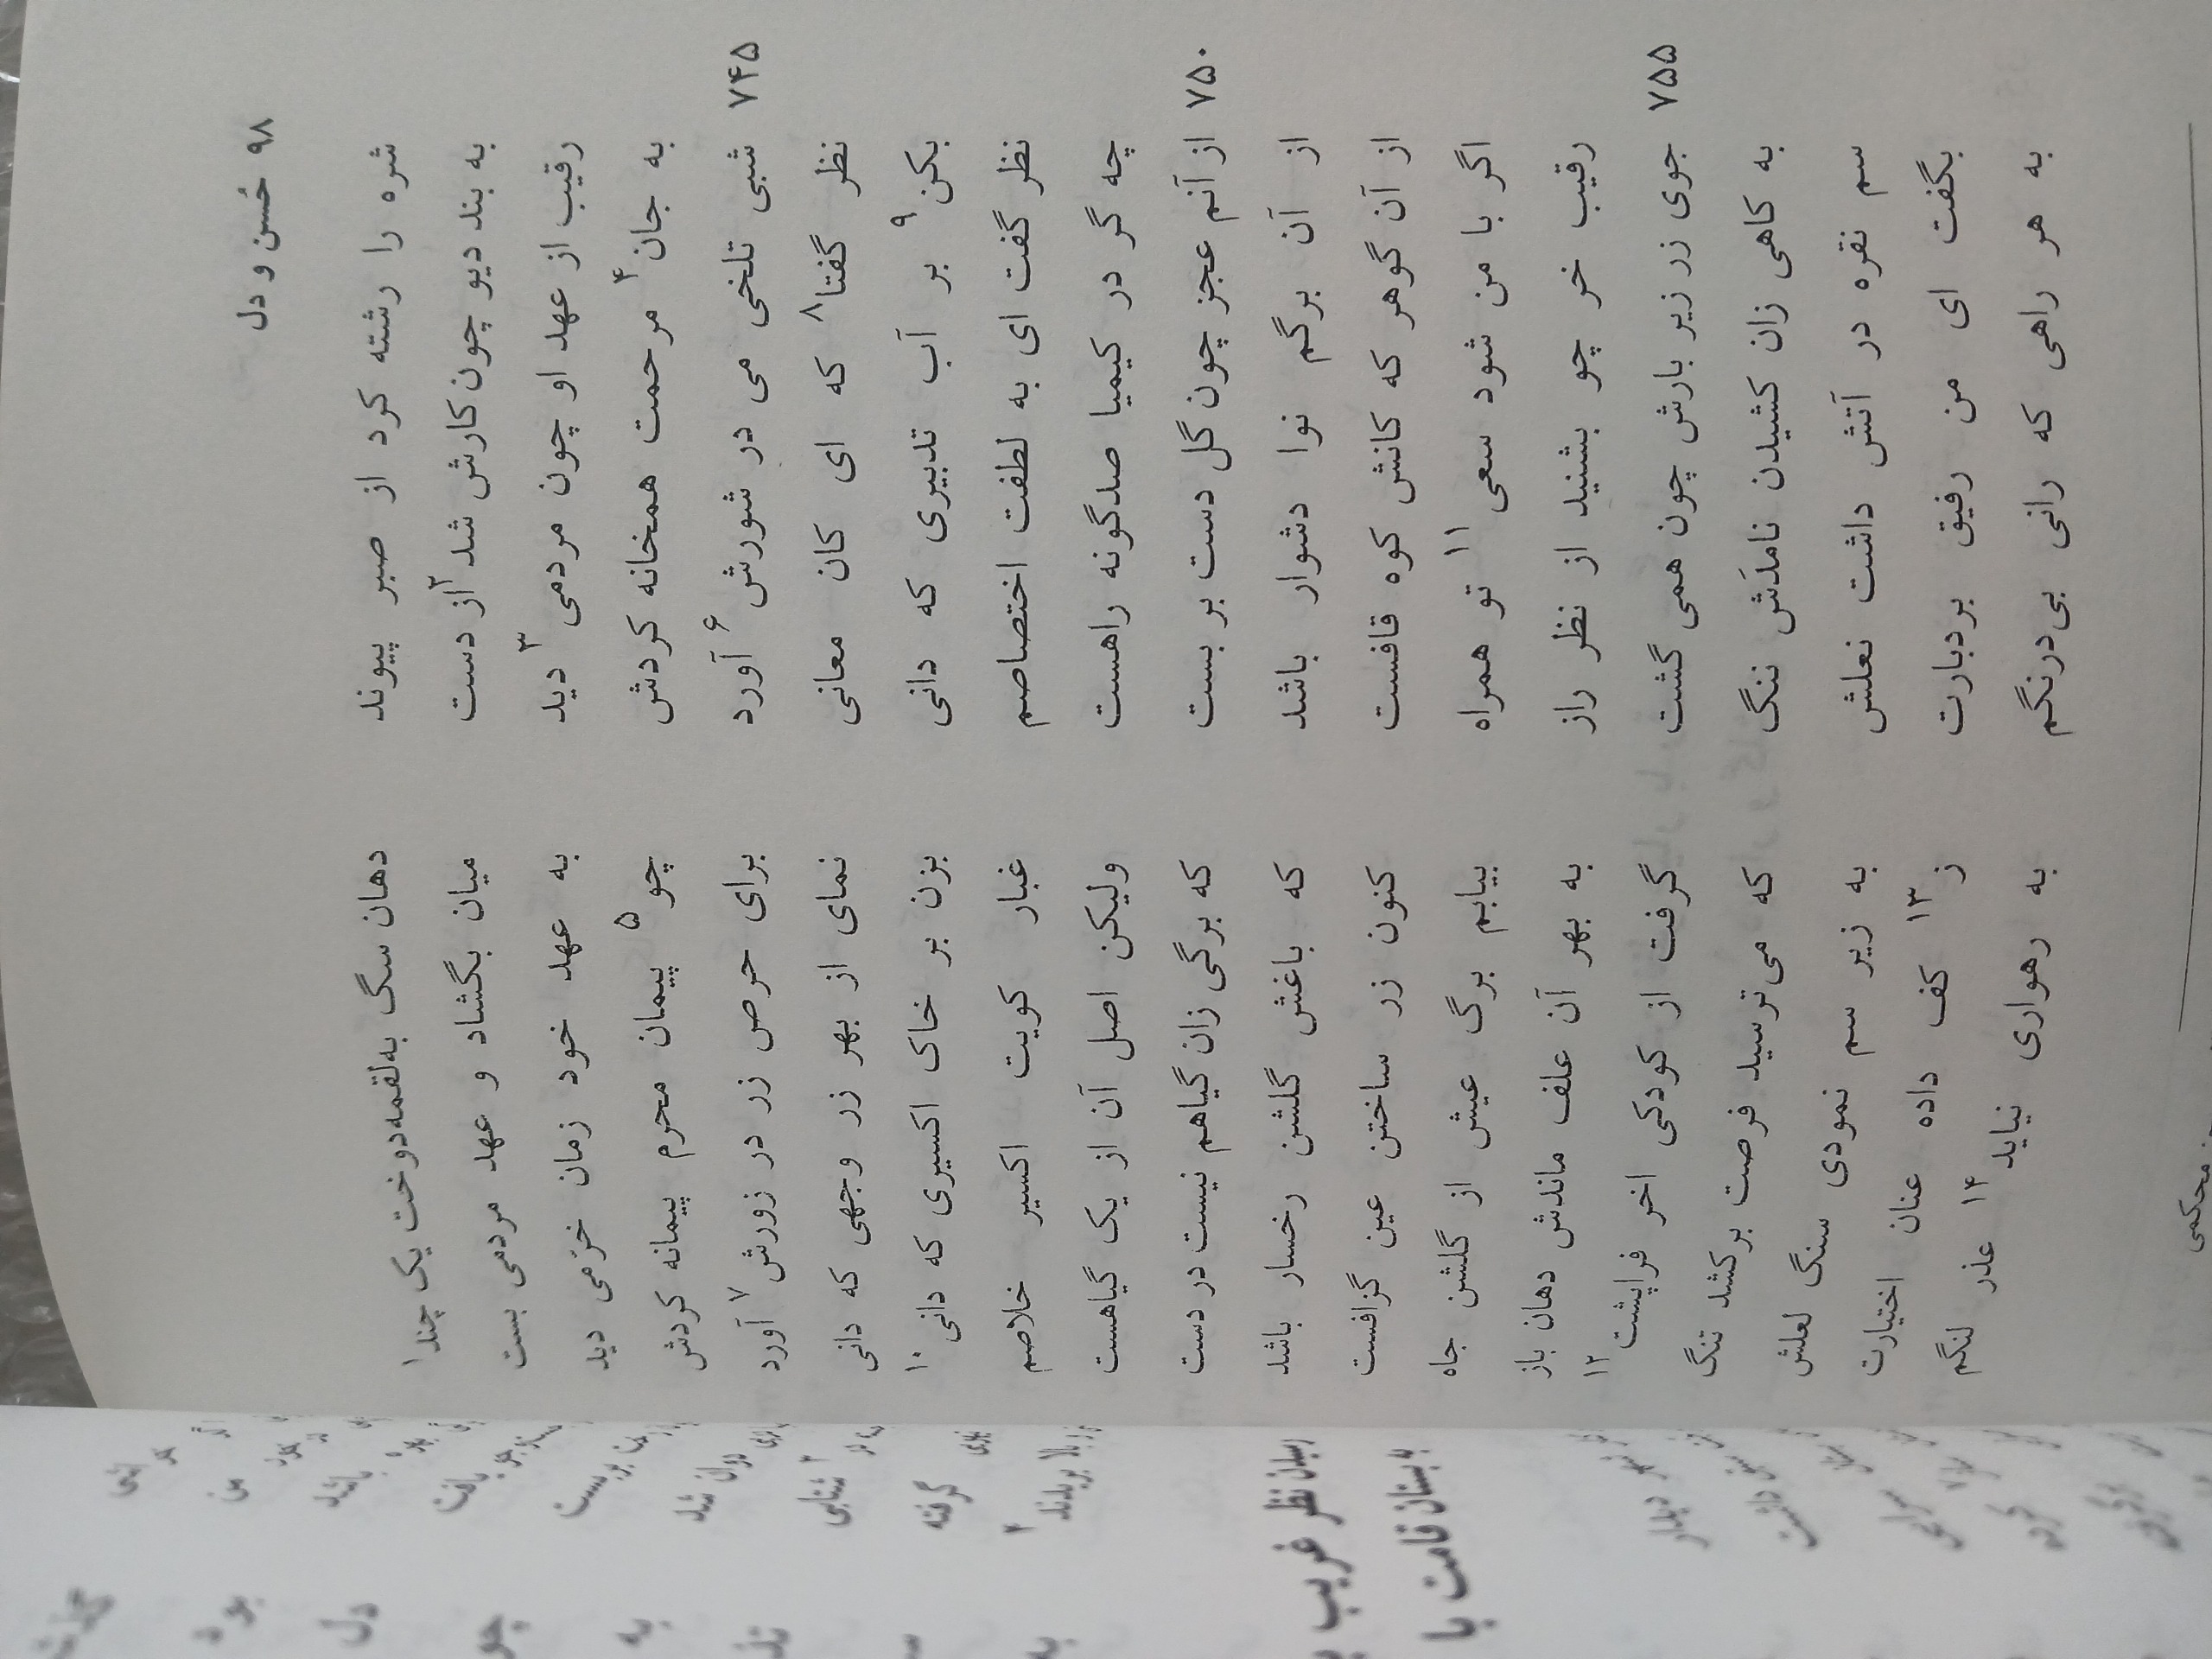 ۹۸ حُسن و دل
شره را رشته کرد از صبر پیوند دهان سگ به‌لقمه‌دوخت یک چند۱
به بند دیو چون کارش شد۲ از دست میان بگشاد و عهد مردمی بست
رقیب از عهد او چون مردمی۳ دید به عهد خود زمان خرّمی دید
به جان۴ مرحمت همخانه کردش چو۵ پیمان محرم پیمانه کردش
۷۴۵ شبی تلخی می در شورش۶ آورد برای حرص زر در زورش۷ آورد
نظر گفتا۸ که ای کان معانی نمای از بهر زر وجهی که دانی
بکن۹ بر آب تدبیری که دانی بزن بر خاک اکسیری که دانی۱۰
نظر گفت ای به لطفت اختصاصم غبار کویت اکسیر خلاصم
چه گر در کیمیا صدگونه راهست ولیکن اصل آن از یک گیاهست
۷۵۰ از آنم عجز چون گل دست بر بست که برگی زان گیاهم نیست در دست
از آن برگم نوا دشوار باشد که باغش گلشن رخسار باشد
از آن گوهر که کانش کوه قافست کنون زر ساختن عین گزافست
اگر با من شود سعی۱۱ تو همراه بیابم برگ عیش از گلشن جاه
رقیب خر چو بشنید از نظر راز به بهر آن علف ماندش دهان باز
۷۵۵ جوی زر زیر بارش چون همی گشت گرفت از کودکی اخر فراپشت۱۲
به کاهی زان کشیدن نامدَش ننگ که می‌ترسید فرصت برکشد تنگ
سم نقره در آتش داشت نعلش به زیر سم نمودی سنگ لعلش
بگفت ای من رفیق بردبارت ز۱۳ کف داده عنان اختیارت
به هر راهی که رانی بی‌درنگم به رهواری نیاید۱۴ عذر لنگم
محکمی